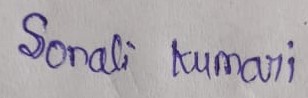 Sonali kumari